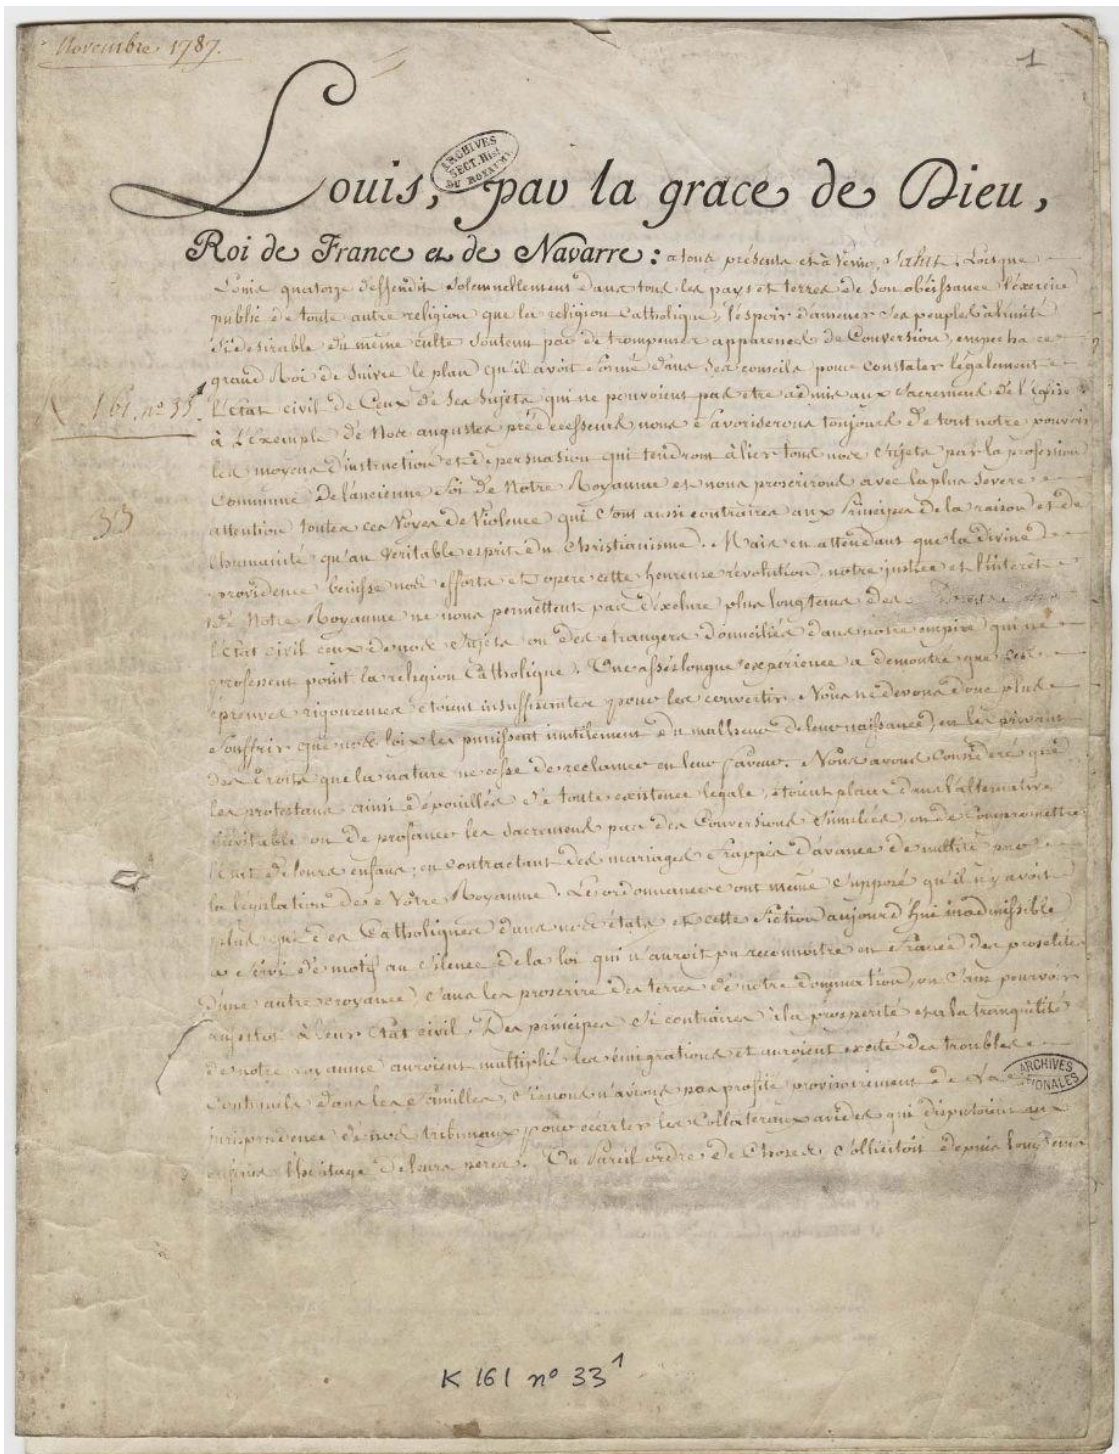 Novembre 1787.
1
ARCHIVES
SECT. HIST.
DU ROYAUME
Louis, par la grace de Dieu,
Roi de France et de Navarre : a tous présents et à venir, Salut. Lorsque
Louis quatorze deffendit solemnellement dans tous les pays et terres de son obéissance l'éxercice
public de toute autre religion que la religion Catholique, l'espoir d'amener ses peuples à l'unité
si desirable du même culte soutenu par de trompeuses apparences de Conversion, empecha ce
grand Roi de suivre le plan qu'il avoit formé dans ses conseils pour constater légalement
K 161. n° 33.1
l'Etat civil de Ceux de ses sujets qui ne pouvoient pas etre admis aux sacremens de l'Eglise :
à l'Exemple de Nos augustes prédecesseurs nous favoriserons toujours de tout notre pouvoir
les moyens d'instruction et de persuasion qui tendront à lier tous nos sujets par la profession
Commune de l'ancienne foi de Notre Royaume et nous proscrirons avec la plus severe
33
attention toutes ces Voyes de Violence qui sont aussi contraires aux Principes de la raison et de
l'humanité qu'au Veritable esprit du Christianisme. Mais en attendant que la divine
providence benisse nos efforts et opere cette heureuse révolution, notre justice et l'intérêt
de Notre Royaume ne nous permettent pas d'éxclure plus longtems des
l'Etat civil ceux de nos sujets ou des etrangers domiciliés dans notre empire qui ne
professent point la religion Catholique. Une assés longue expérience a demontré que ces
épreuves rigoureuses étoient insuffisantes pour les convertir. Nous ne devons donc plus
souffrir que nos loix les punissent inutilement du malheur de leur naissance, en les privant
des droits que la nature ne cesse de reclamer en leur faveur. Nous avons Consideré que
les protestans ainsi dépouillés de toute existence legale, étoient placés dans l'alternative
inévitable ou de profaner les sacremens par des Conversions simulées, ou de compromettre
l'Etat de leurs enfans, en contractant des mariages frappés d'avance de nullité par
la législation de Notre Royaume. Les ordonnances ont même supposé qu'il n'y avoit
plus que des Catholiques dans nos états et cette fiction aujourd'hui inadmissible
a servi de motif au silence de la loi qui n'auroit pu reconnoitre en France des proselites
d'une autre croyance, sans les proscrire des terres de notre domination, ou sans pourvoir
aussitot à leur Etat civil. Des principes si contraires à la prospérité et à la tranquilité
de notre royaume auroient multiplié les émigrations et auroient excité des troubles
Continuels dans les familles, si nous n'avions pas profité provisoirement de la
jurisprudence de nos tribunaux pour écarter les Collateraux avides qui disputoient aux
enfans l'héritage de leurs peres. Un Pareil ordre de Choses sollicitoit depuis longtems
ARCHIVES
NATIONALES
K 161 n° 33 1